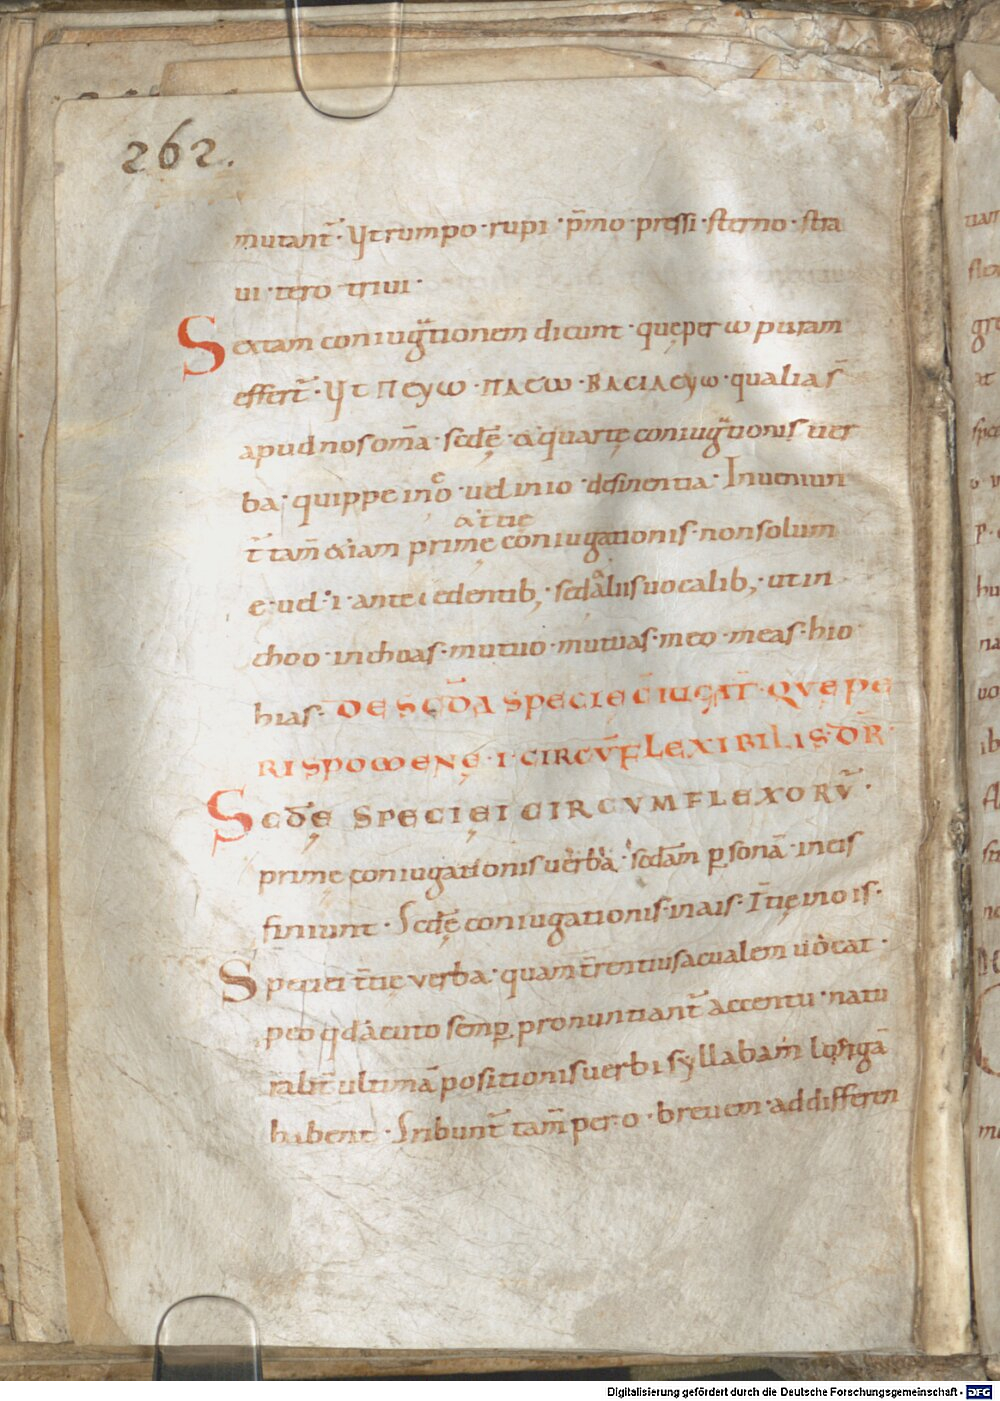 262.
mutant̄· Ut rumpo· rupi· p̄mo· pressi· sterno· stra
ui· tero· triui·
Sextam coniugationem dicunt· quę per ω puram
effert̄· Ut πεyω· πλεω· βαcιλεyω· qualia s̄
apud nos om̄a· scdę̄· & quartę coniugationis uer
ba· quippe in eo· uel in io· desinentia· Inueniun
t̄ tam̄ &iam primę coniugationis· non solum
& t̄tię
e· uel· i· antecedentib;· sed aliis uocalib;· ut in
choo· inchoas· mutuo· mutuas· meo· meas· hio
hias· DE SCDA SPECIE C̄IUGAT̄· QVE PE
RISPOMENE· I· CIRCV̄FLEXIBILIS· DR̄
Scdę̄ SPECIEI CIRCVMFLEXORV̄·
primę coniugationis uerba· scdam̄ p̱sonā· in eis
finiunt· Scdę̄ coniugationis· in ais· T̄tię in ois·
Speciei t̄tię verba· quam t̄rentius acualem uocat·
p eo qd̄ acuto semp̱ pronuntiant̄ accentu· natu
ralit̄ ultimā positionis uerbi syllabam longā
habent· Sribunt̄ tam̄ per· o· breuem· ad differen
Digitalisierung gefördert durch die Deutsche Forschungsgemeinschaft - DFG